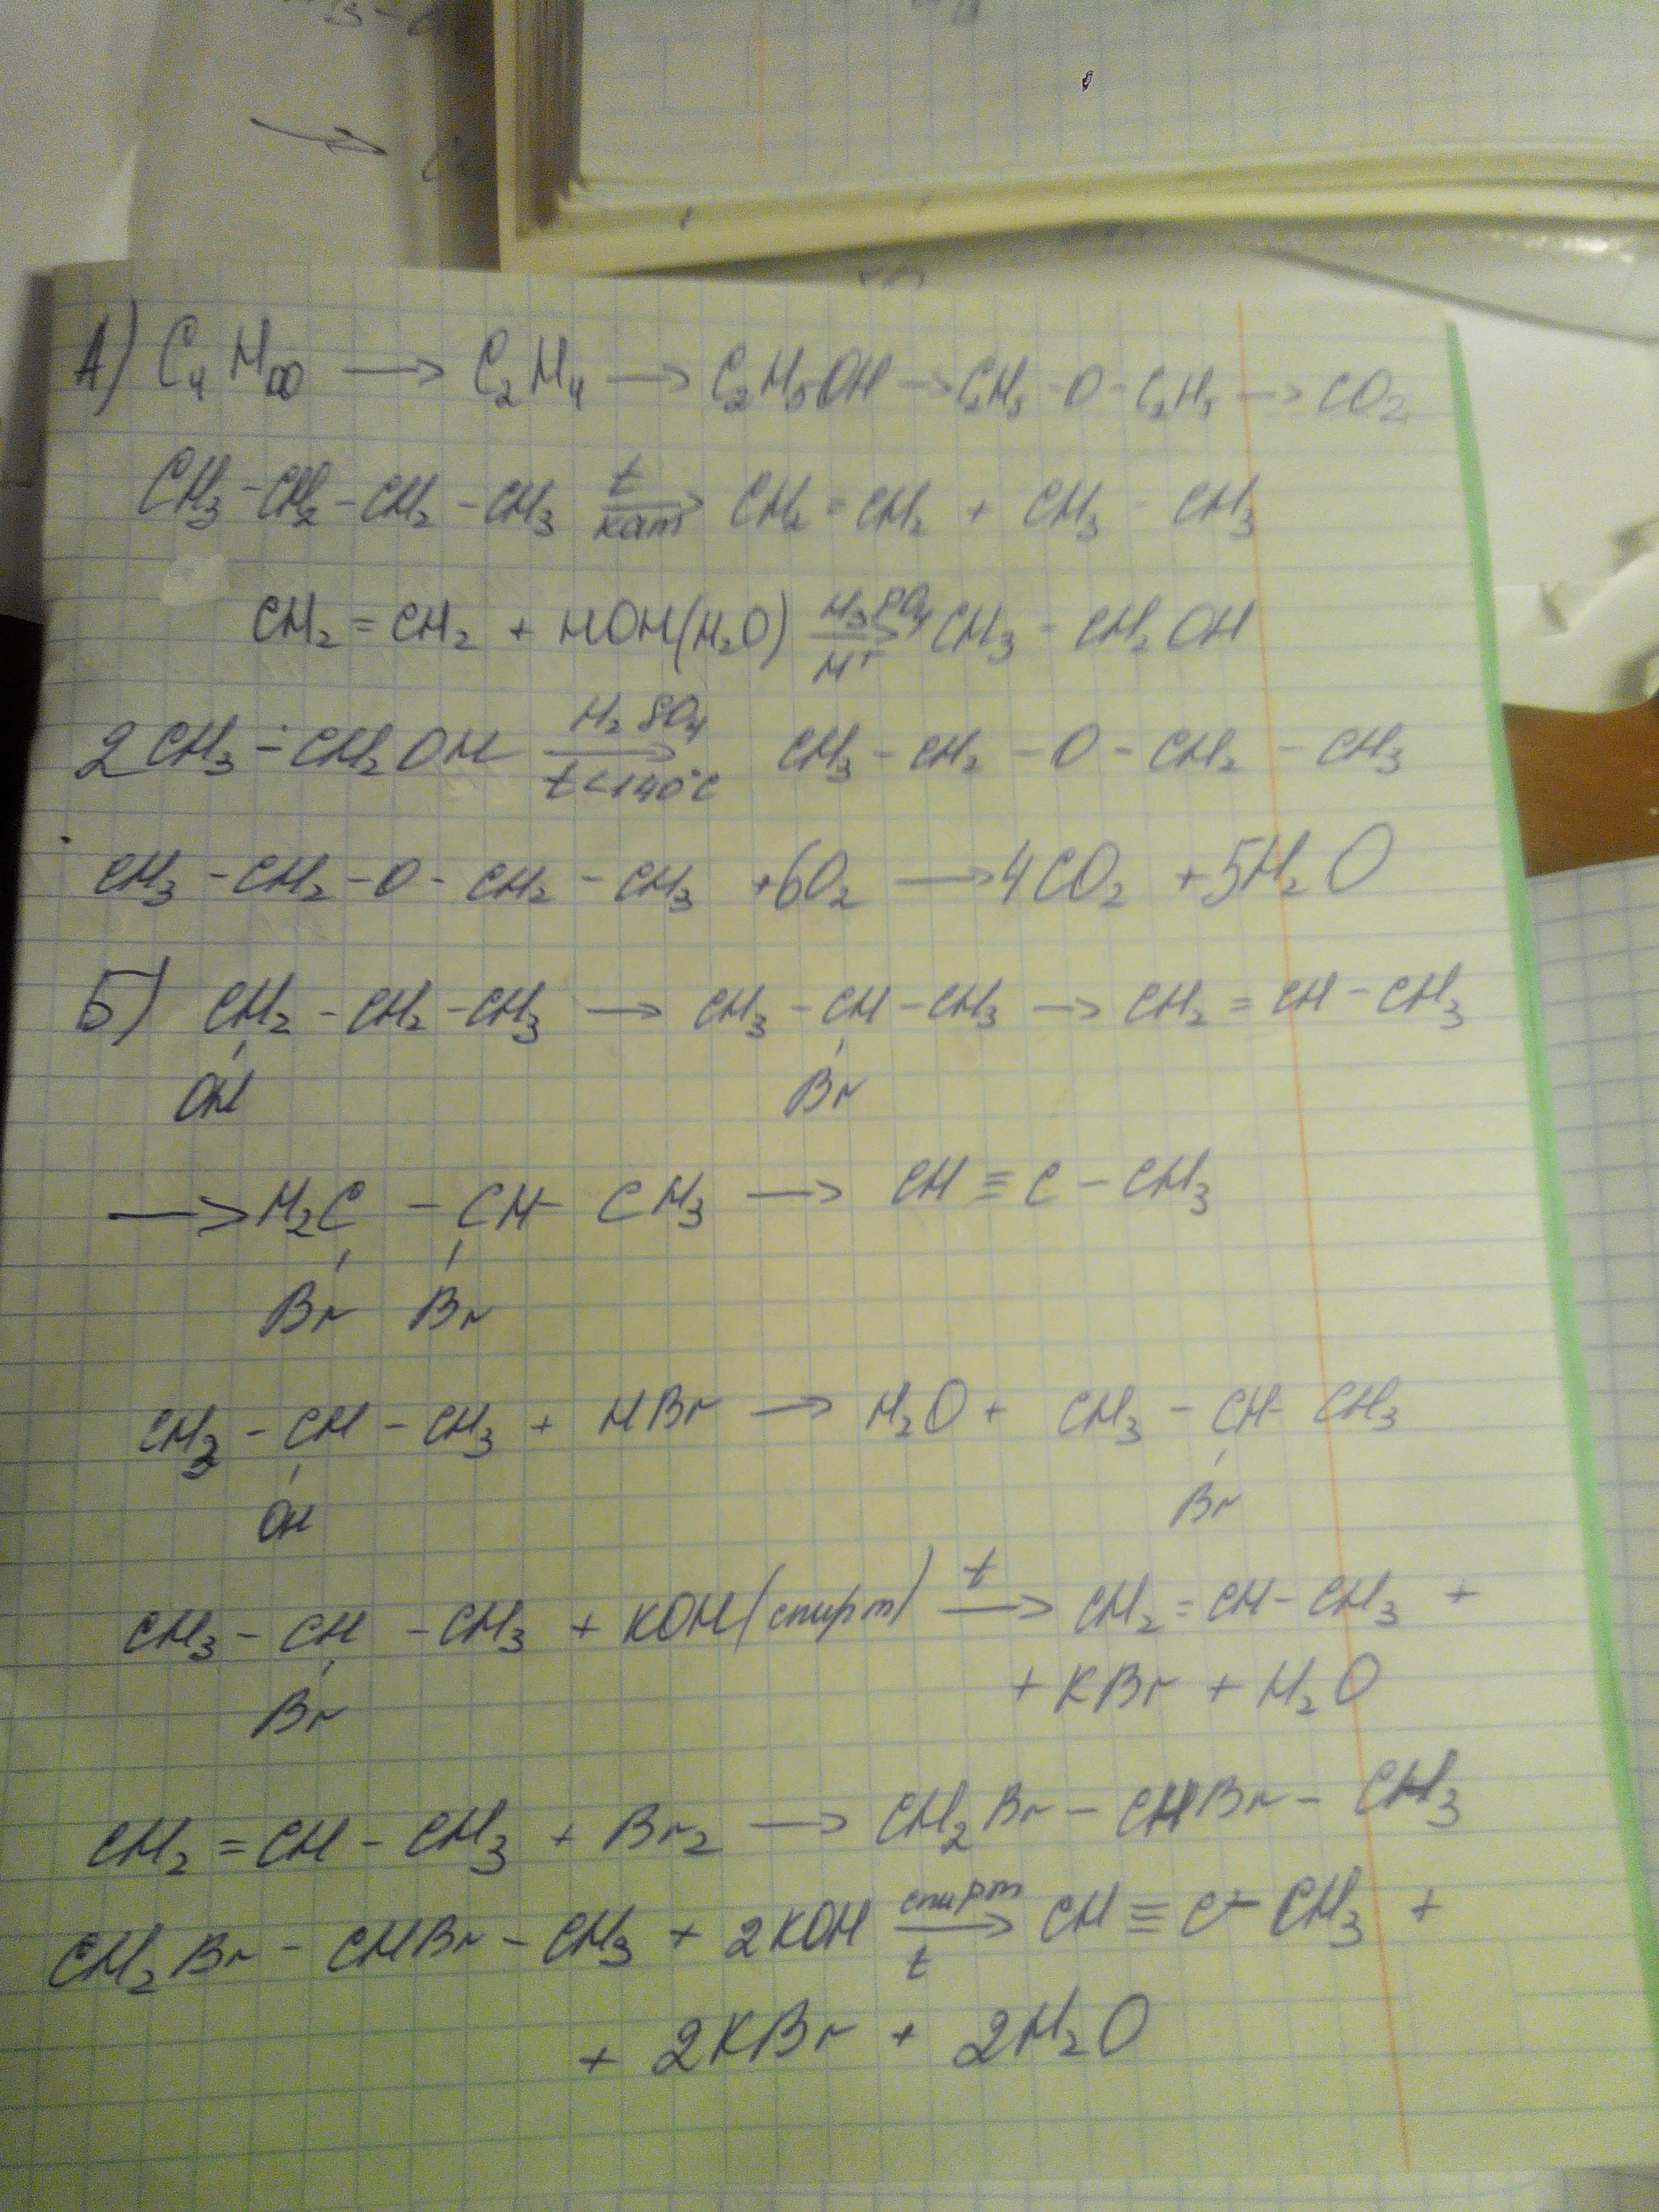 А) C₄H₁₀ → C₂H₄ → C₂H₅OH → C₂H₅-O-C₂H₅ → CO₂
CH₃-CH₂-CH₂-CH₃ t → кат CH₂=CH₂ + CH₃-CH₃
CH₂=CH₂ + HOH(H₂O) H₃PO₄ → H⁺ CH₃-CH₂OH
2CH₃-CH₂OH H₂SO₄ → t<140°C CH₃-CH₂-O-CH₂-CH₃
CH₃-CH₂-O-CH₂-CH₃ +6O₂ → 4CO₂ +5H₂O
Б) CH₂-CH₂-CH₃ → CH₃-CH-CH₃ → CH₂=CH-CH₃
OH Br
→ H₂C - CH- CH₃ → CH≡C-CH₃
Br Br
CH₃-CH-CH₃ + HBr → H₂O + CH₃-CH-CH₃
OH Br
CH₃-CH-CH₃ + KOH(спирт) t → CH₂=CH-CH₃ +
Br + KBr + H₂O
CH₂=CH-CH₃ + Br₂ → CH₂Br-CHBr-CH₃
CH₂Br-CHBr-CH₃ + 2KOH спирт → t CH≡C-CH₃ +
+ 2KBr + 2H₂O